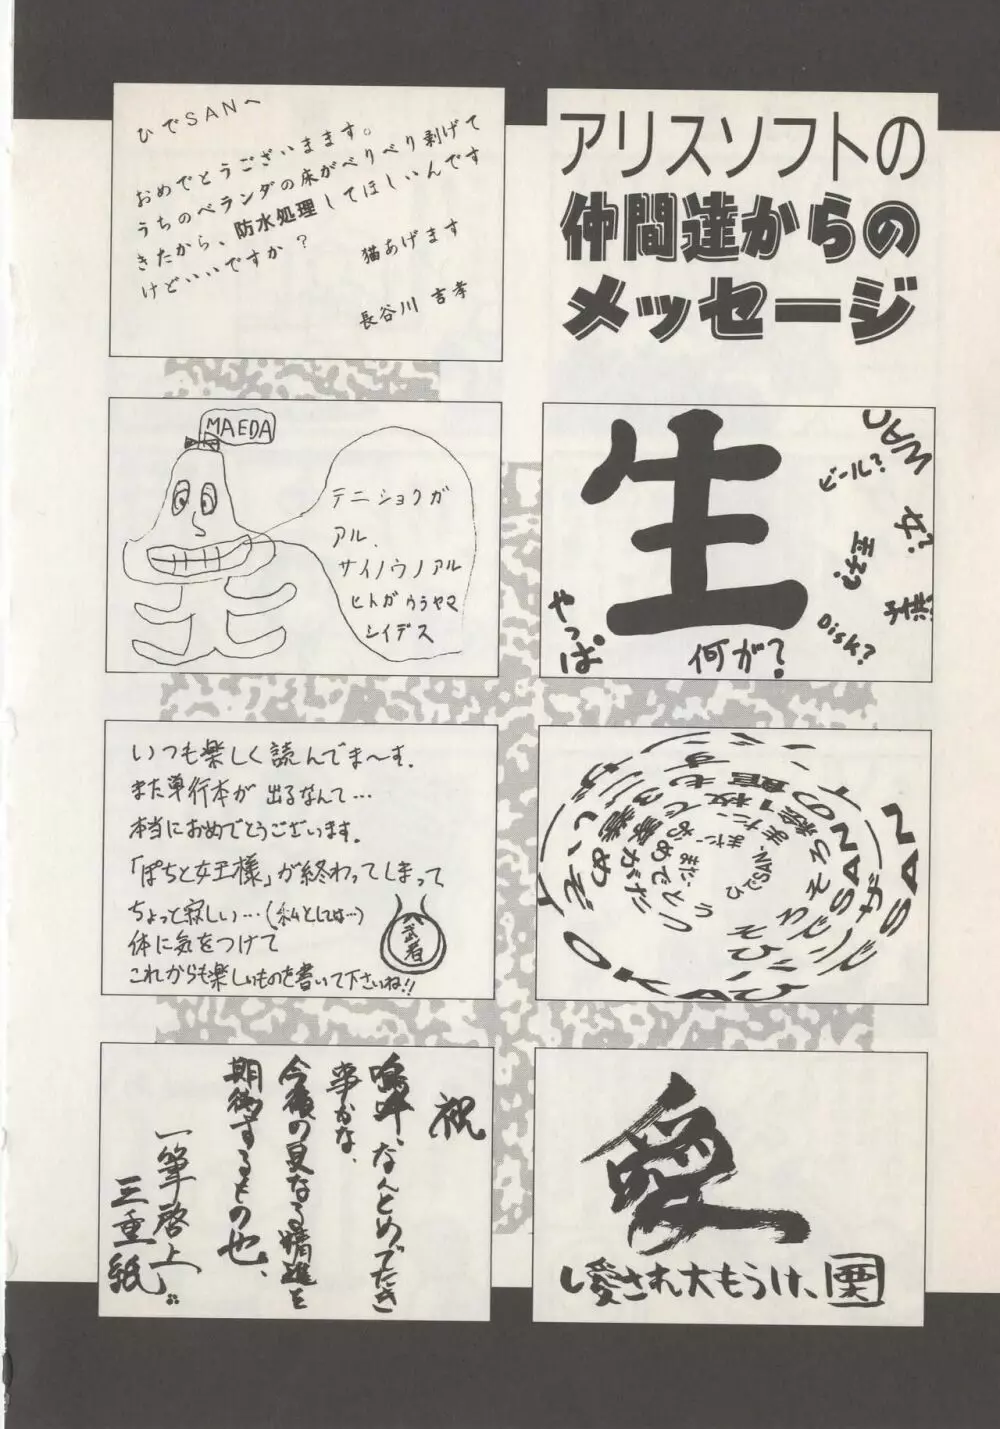 アリスソフトの
仲間達からの
メッセージ
ひでSANへ
おめでとうございまます。
うちのベランダの床がべりべり剥げて
きたから、防水処理してほしいんです
けどいいですか?
猫あげます
長谷川 吉孝
生
MAC
ビール?
女?
主か?
子供?
Disk?
何が?
やっぱ。
MAEDA
テニショクガ
アル、
サイノウノアル
ヒトガウラヤマ
シイデス
いつも楽しく読んでま〜す.
また単行本が出るなんて…
本当におめでとうございます.
「ぽちと女王様」が終わってしまって
ちょっと寂しい…(私としては…)
体に気をつけて
これからも楽しいものを書いて下さいね!!
武者
ひでSAN
愛
し愛され大もうけ、
祝
嗚呼、なんとめでたき
事かな、
今後の更なる精進を
期待するもの也、
一筆啓上
三重紙